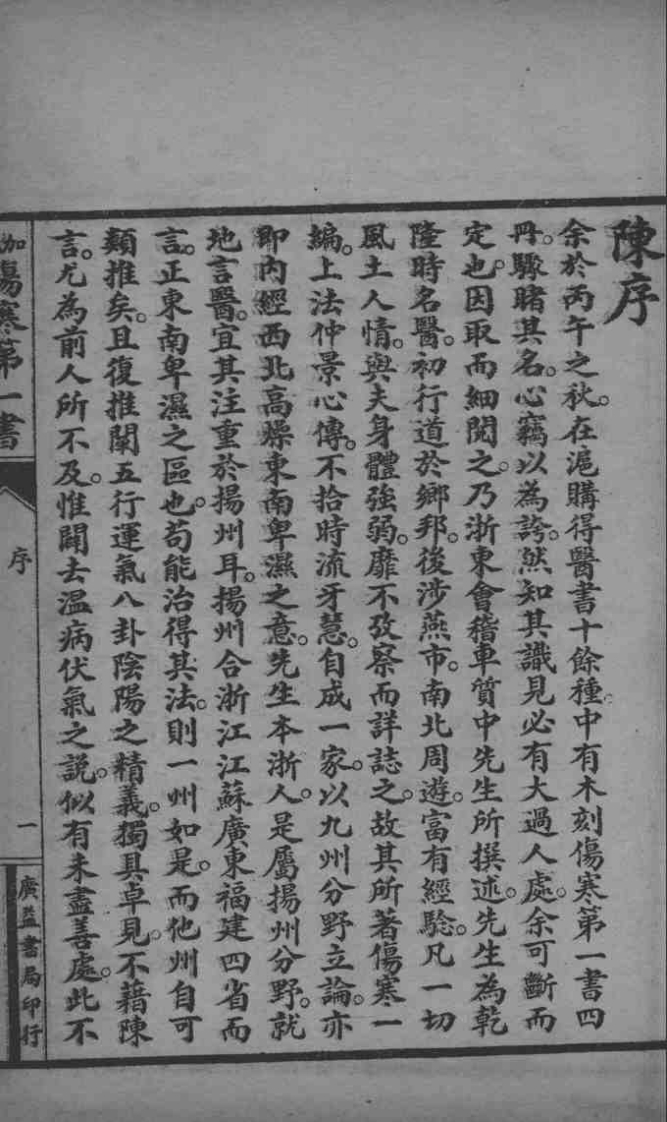 陳序
余於丙午之秋。在滬購得醫書十餘種中有木刻傷寒第一書四
冊。驟睹其名。心竊以為誇。然知其識見必有大過人處。余可斷而
定也。因取而細閱之。乃浙東會稽車質中先生所撰述。先生為乾
隆時名醫。初行道於鄉邦。後涉燕市。南北周遊。富有經驗。凡一切
風土人情。與夫身體強弱。靡不攷察而詳誌之。故其所著傷寒一
編。上法仲景心傳。不拾時流牙慧。自成一家。以九州分野立論。亦
即內經西北高燥東南卑濕之意。先生本浙人。是屬揚州分野。就
地言醫。宜其注重於揚州耳。揚州合浙江江蘇廣東福建四省而
言。正東南卑濕之區也。苟能治得其法。則一州如是。而他州自可
類推矣。且復推闡五行運氣八卦陰陽之精義。獨具卓見。不藉陳
言。尤為前人所不及。惟闢去溫病伏氣之說。似有未盡善處。此不
傷寒第一書
序
一
廣益書局印行